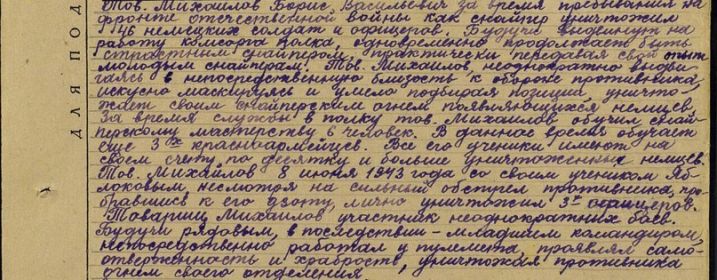 Тов. Михайлов Борис Васильевич за время пребывания на
фронте отечественной войны как снайпер уничтожил
46 немецких солдат и офицеров. Будучи выдвинут на
работу комсорга полка, одновременно продолжает быть
страстным снайпером, практически передавая свой опыт
молодым снайперам. Тов. Михайлов неоднократно выдви-
гаясь в непосредственную близость к обороне противника,
искусно маскируясь и умело подбирая позиции, уничто-
жает своим снайперским огнем появляющихся немцев.
За время службы в полку тов. Михайлов обучил снай-
перскому мастерству 6 человек. В данное время обучает
еще 3х красноармейцев. Все его ученики имеют на
своем счету по десятку и больше уничтоженных немцев.
Тов. Михайлов 8 июня 1943 года со своим учеником Яб-
локовым, несмотря на сильный обстрел противника, про-
бравшись к его дзоту, лично уничтожил 3х офицеров.
Товарищ Михайлов участник неоднократных боев.
Будучи рядовым, в последствии - младшим командиром,
непосредственно работал у пулемета, проявлял само-
отверженность и храбрость, уничтожая противника
огнем своего отделения.
ДЛЯ ПОД